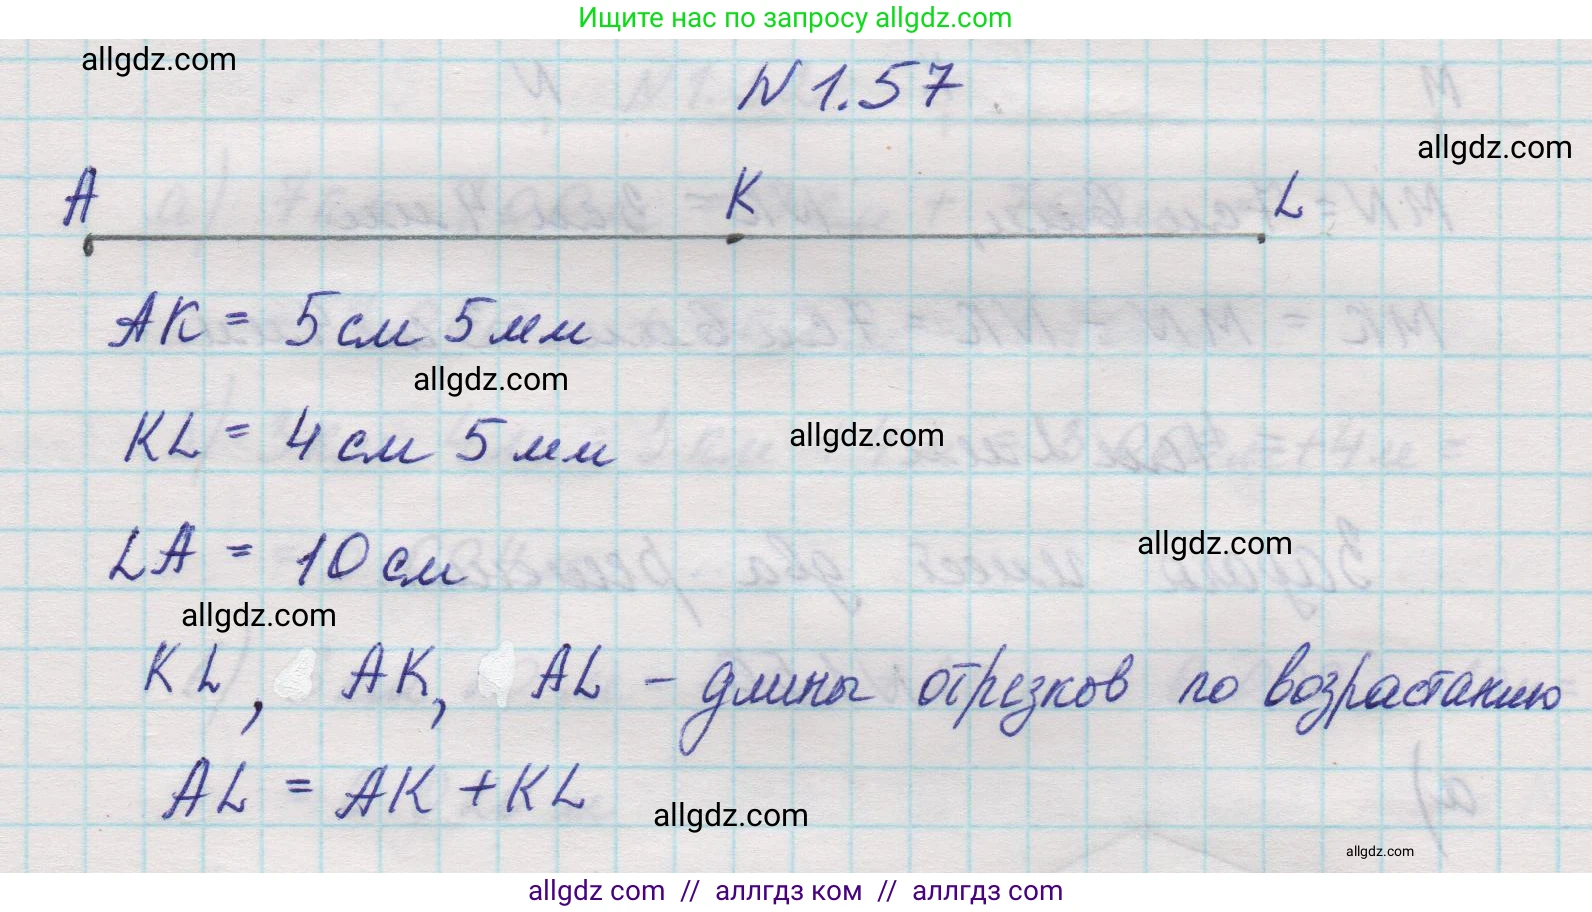 Ищите нас по запросу allgdz.com
allgdz.com
N 1.57
allgdz.com
A K L
AK = 5 см 5 мм
allgdz.com
KL = 4 см 5 мм
allgdz.com
LA = 10 см
allgdz.com
allgdz.com
KL, AK, AL - длины отрезков по возрастанию
AL = AK + KL
allgdz.com
allgdz.com
allgdz com // аллгдз ком // аллгдз com